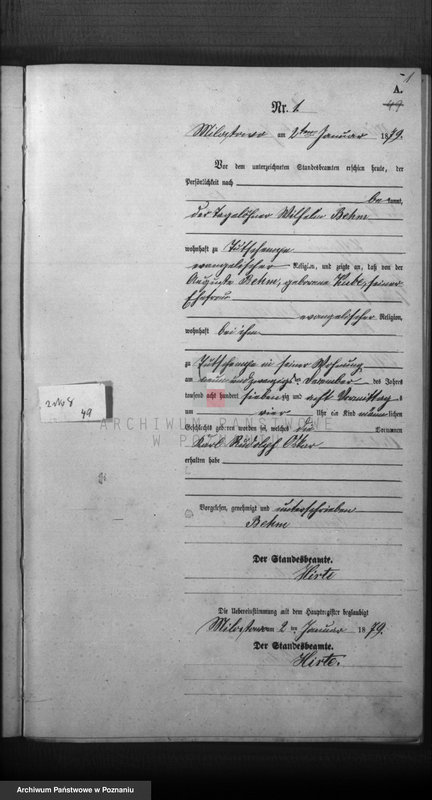 1
A.
49
Nr. 1.
Milostowo am 2ten Januar 1879.
Vor dem unterzeichneten Standesbeamten erschien heute, der
Persönlichkeit nach
be kannt,
der Tagelöhner Wilhelm Behm
wohnhaft zu
evangelischer Religion, und zeigte an, daß von der
Auguste Behm, geborene Kube, seiner
Ehefrau
evangelischer Religion,
wohnhaft bei ihm
zu in seiner Wohnung
am neun und zwanzigsten Dezember des Jahres
tausend acht hundert sieben zig und acht Vormittag s
um vier Uhr ein Kind männ lichen
Geschlechts geboren worden sei, welches die Vornamen
Karl Rudolph Oskar
erhalten habe
Vorgelesen, genehmigt und unterschrieben
Behm
Der Standesbeamte.
Hirte
Die Uebereinstimmung mit dem Hauptregister beglaubigt
Milostowo am 2 ten Januar 1879.
Der Standesbeamte.
Hirte.
49
ARCHIWUM PAŃSTWOWE
W POZNANIU
Archiwum Państwowe w Poznaniu